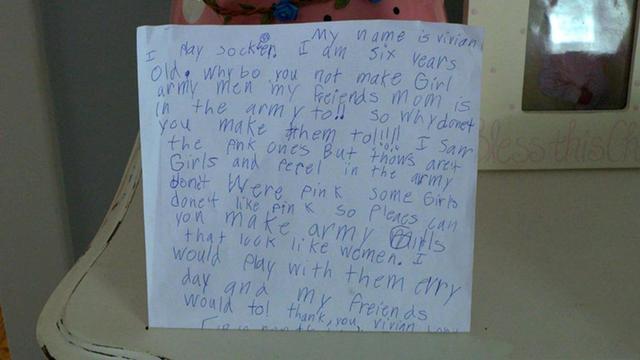 My name is vivian
I play socker. I am six years
old. Why do you not make Girl
army men my freiends mom is
in the army to!! so why donet
you make them to!!!!! I saw
the pnk ones But thows aren't
Girls and pepel in the army
don't Were pink some Girls
donet like pink so Pleaes can
you make army Girls
that look like women. I
would play with them evry
day and my freiends
would to! thank you, vivian
Bless this Ch